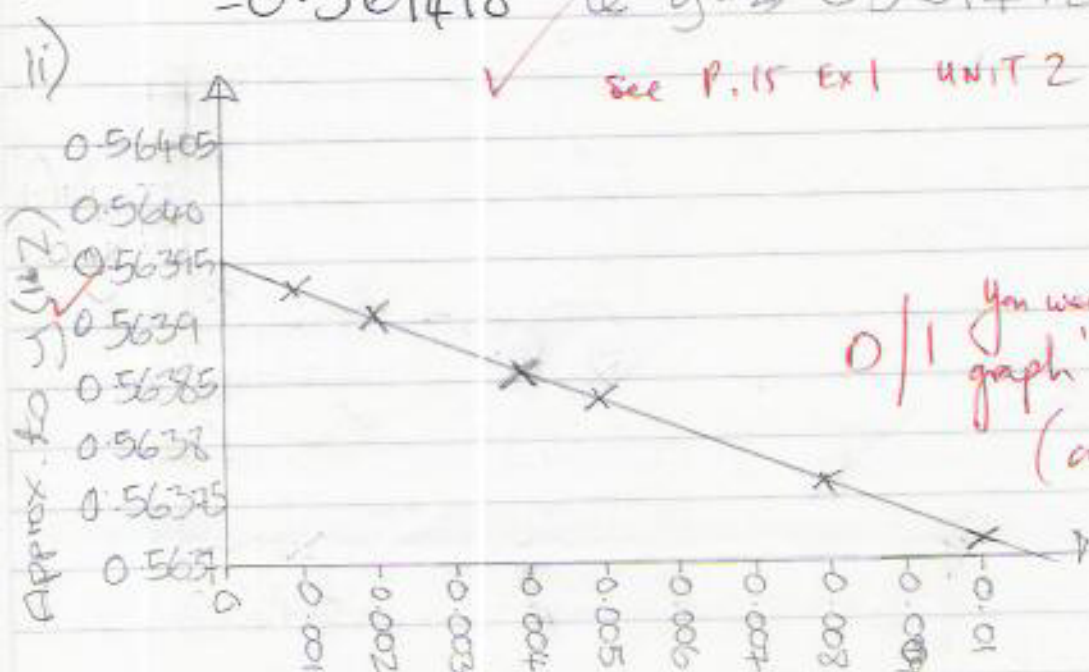 =0.561418
ii)
✓ See P.15 Ex 1 UNIT 2
0.56405
0.5640
0.56395
0.5639
0.56385
0.5638
0.56375
0.5637
Approx. to y(1.2)
0/1 You
graph
0
0.001
0.002
0.003
0.004
0.005
0.006
0.007
0.008
0.01